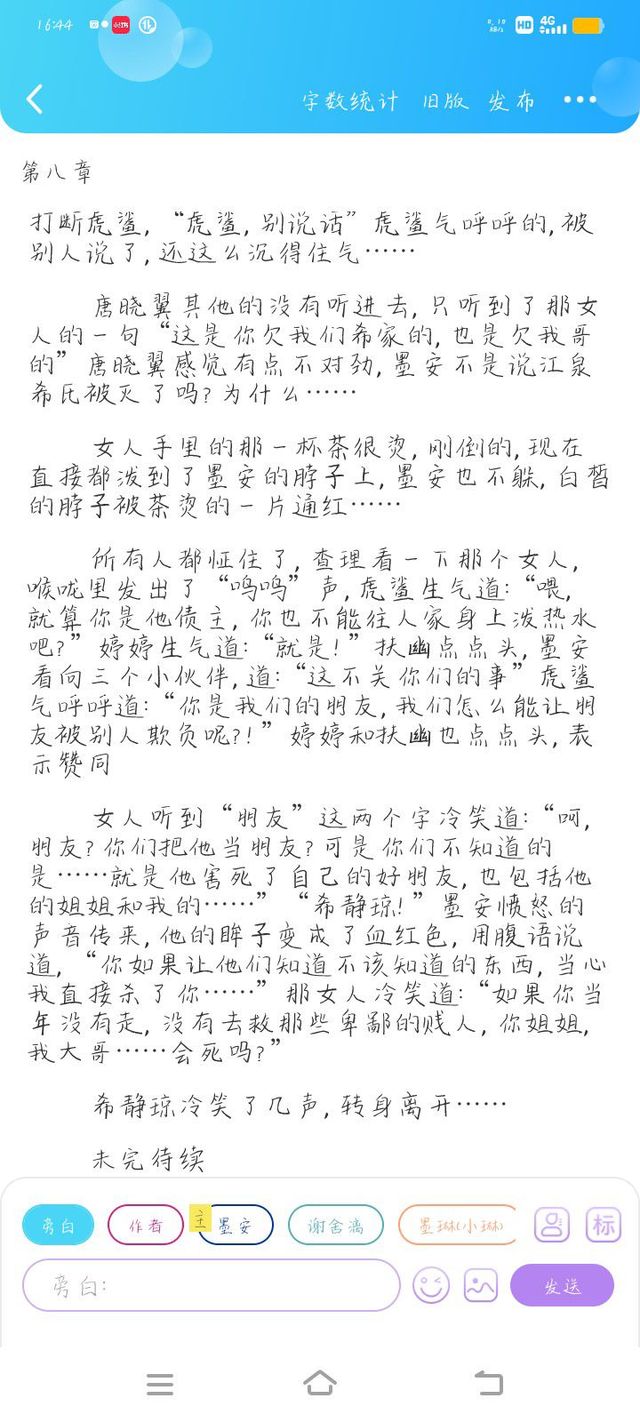 16:44
小红书
HD
4G
字数统计 旧版 发布
第八章
打断虎鲨，“虎鲨，别说话”虎鲨气呼呼的，被
别人说了，还这么沉得住气……
唐晓翼其他的没有听进去，只听到了那女
人的一句“这是你欠我们希家的，也是欠我哥
的”唐晓翼感觉有点不对劲，墨安不是说江泉
希氏被灭了吗？为什么……
女人手里的那一杯茶很烫，刚倒的，现在
直接都泼到了墨安的脖子上，墨安也不躲，白皙
的脖子被茶烫的一片通红……
所有人都怔住了，查理看一下那个女人，
喉咙里发出了“呜呜”声，虎鲨生气道：“喂，
就算你是他债主，你也不能往人家身上泼热水
吧？”婷婷生气道：“就是！”扶幽点点头，墨安
看向三个小伙伴，道：“这不关你们的事”虎鲨
气呼呼道：“你是我们的朋友，我们怎么能让朋
友被别人欺负呢？！”婷婷和扶幽也点点头，表
示赞同
女人听到“朋友”这两个字冷笑道：“呵，
朋友？你们把他当朋友？可是你们不知道的
是……就是他害死了自己的好朋友，也包括他
的姐姐和我的……”“希静琼！”墨安愤怒的
声音传来，他的眸子变成了血红色，用腹语说
道，“你如果让他们知道不该知道的东西，当心
我直接杀了你……”那女人冷笑道：“如果你当
年没有走，没有去救那些卑鄙的贱人，你姐姐，
我大哥……会死吗？”
希静琼冷笑了几声，转身离开……
未完待续
旁白 作者 主 墨安 谢舍漓 墨琳(小琳) 标
旁白： 发送